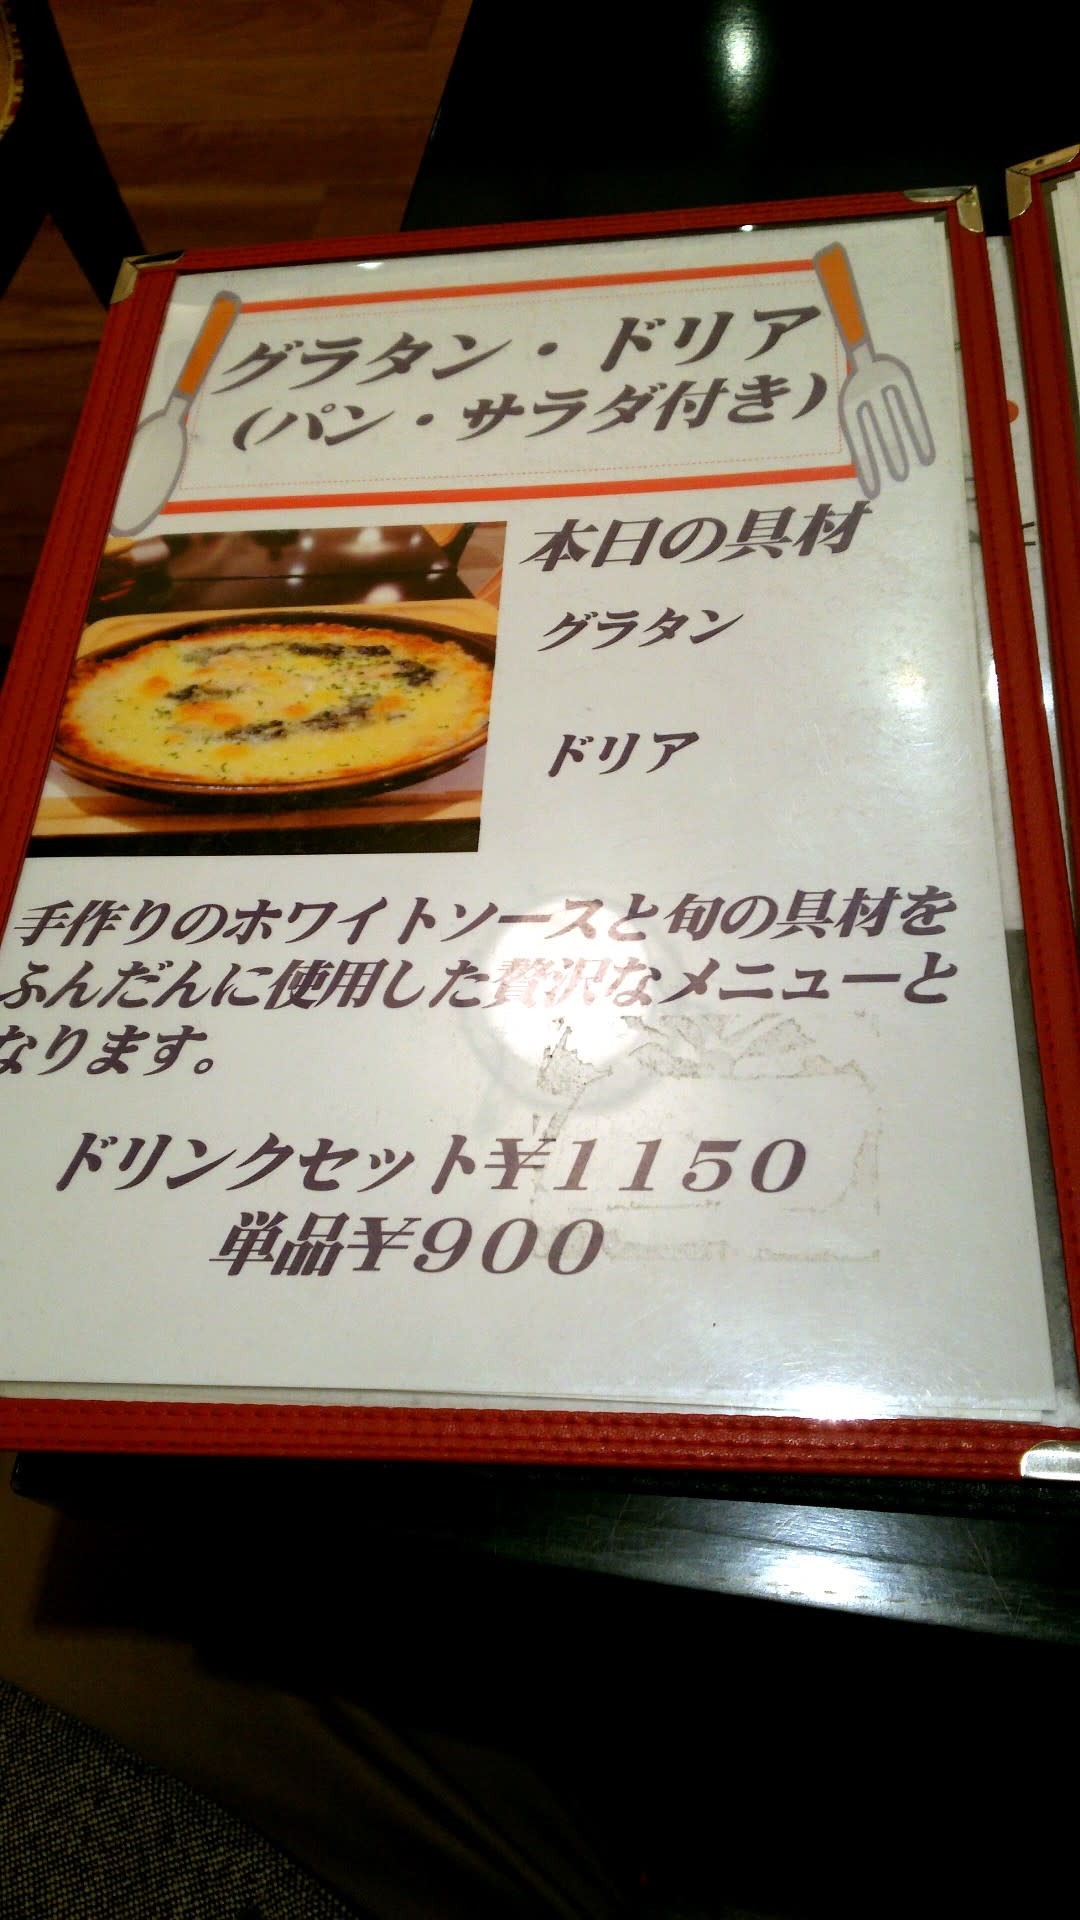 グラタン・ドリア
(パン・サラダ付き)
本日の具材
グラタン
ドリア
手作りのホワイトソースと旬の具材を
ふんだんに使用した贅沢なメニューと
なります。
ドリンクセット¥1150
単品¥900